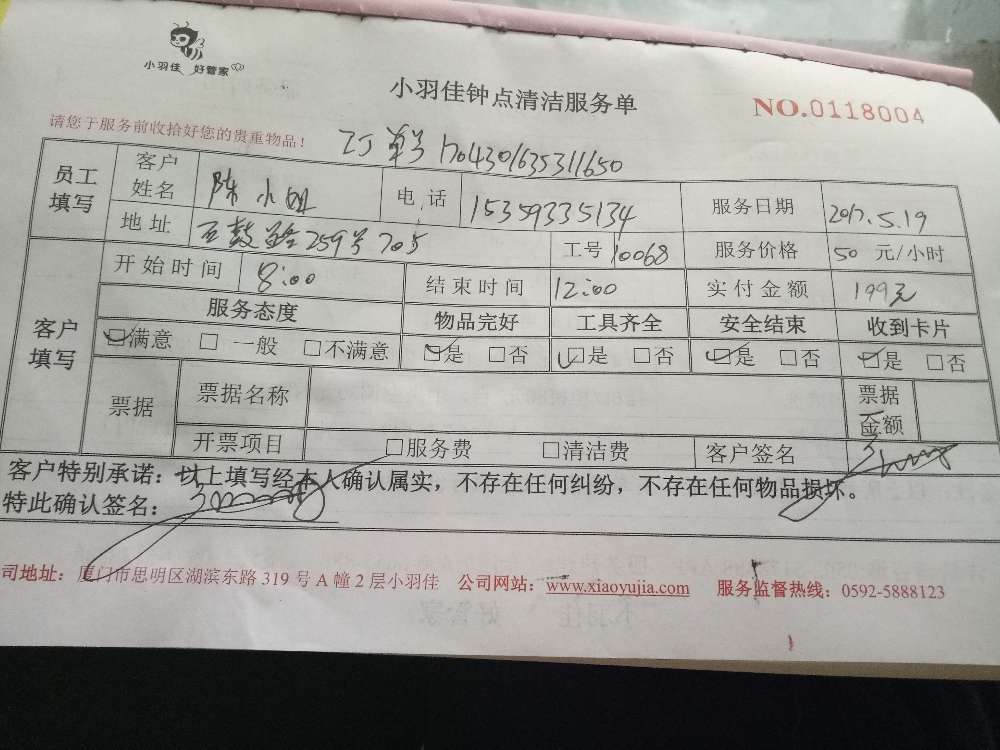 小羽佳 好管家
小羽佳钟点清洁服务单
NO.0118004
请您于服务前收拾好您的贵重物品！
订单号 170430163531650
员工填写 客户姓名 陈小姐 电话 15359335134 服务日期 2017.5.19
地址 259号705 工号 10068 服务价格 50 元/小时
客户填写 开始时间 8:00 结束时间 12:00 实付金额 199元
服务态度 物品完好 工具齐全 安全结束 收到卡片
☑满意 □一般 □不满意 ☑是 □否 ☑是 □否 ☑是 □否 ☑是 □否
票据 票据名称 票据金额
开票项目 □服务费 □清洁费 客户签名
客户特别承诺：以上填写经本人确认属实，不存在任何纠纷，不存在任何物品损坏。
特此确认签名：
司地址：厦门市思明区湖滨东路319号A幢2层小羽佳 公司网站：www.xiaoyujia.com 服务监督热线：0592-5888123